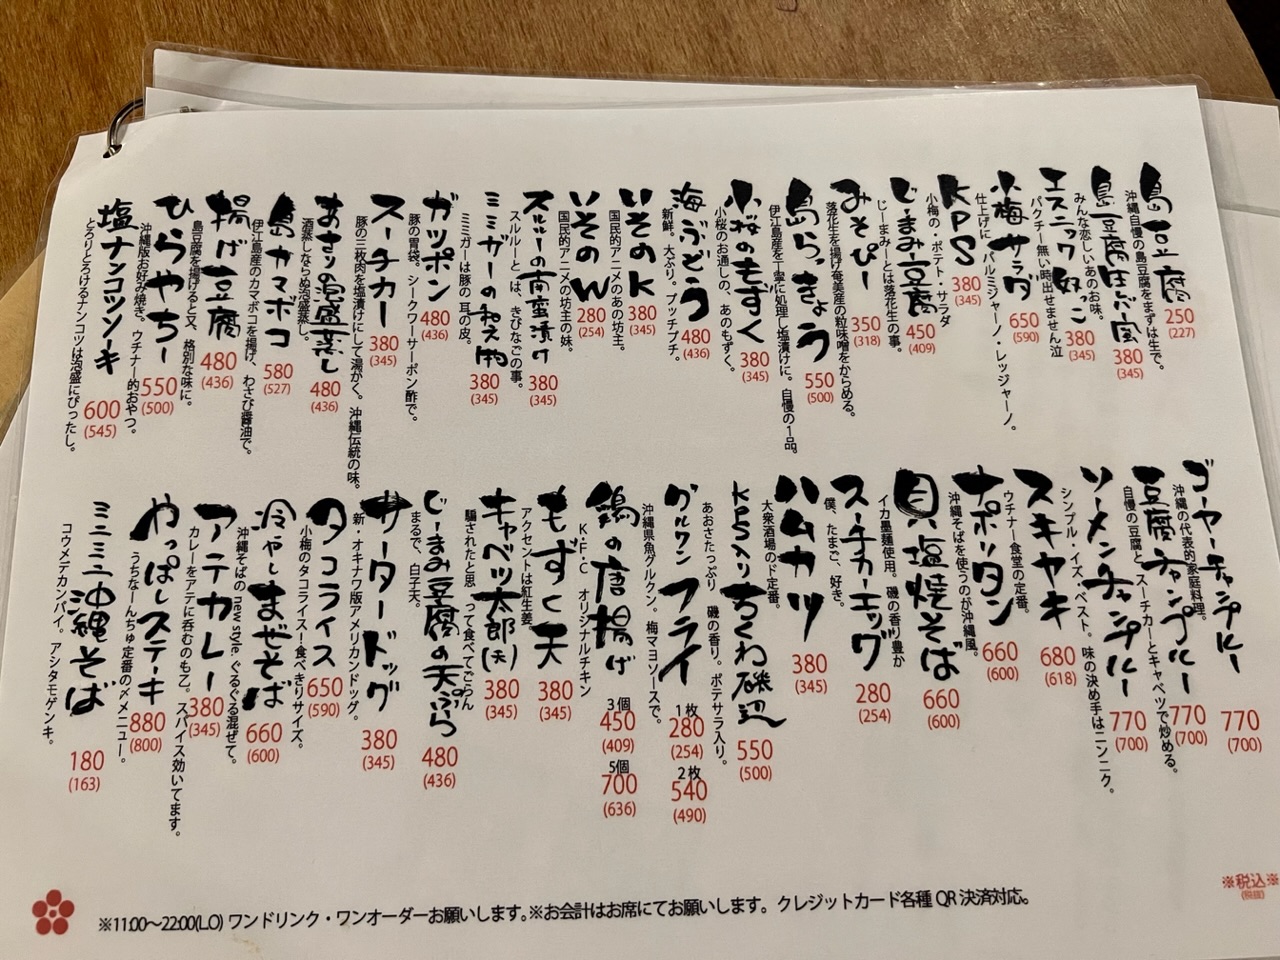 島豆腐
沖縄自慢の島豆腐をまずは生で。
250
(227)
島豆腐生ぶ風
380
(345)
エスニック奴っこ
みんな恋しいあのお味。
パクチー無い時出せません泣
380
(345)
小梅サラダ
仕上げにパルミジャーノ・レッジャーノ。
650
(590)
KPS
小梅の・ポテト・サラダ
380
(345)
じーまみ豆腐
じーまみーとは落花生の事。
450
(409)
みそぴー
落花生を揚げ奄美産の粒味噌をからめる。
350
(318)
島らっきょう
伊江島産を丁寧に処理し塩漬けに。自慢の1品。
550
(500)
小桜のもずく
小桜のお通しの、あのもずく。
380
(345)
海ぶどう
新鮮。大ぶり。プッチプチ。
480
(436)
いそのK
国民的アニメのあの坊主。
380
(345)
いそのW
国民的アニメの坊主の妹。
280
(254)
スルルーの南蛮漬け
スルルーとは、きびなごの事。
380
(345)
ミミガーの和え物
ミミガーは豚の耳の皮。
380
(345)
ガツポン
豚の胃袋。シークワーサーポン酢で。
480
(436)
スーチカー
豚の三枚肉を塩漬けにして湯がく。沖縄伝統の味。
380
(345)
あさりの泡盛蒸し
酒蒸しならぬ泡盛蒸し。
480
(436)
島カマボコ
伊江島産のカマボコを揚げ、わさび醤油で。
580
(527)
揚げ豆腐
島豆腐を揚げると又、格別な味に。
480
(436)
ひらやちー
沖縄版お好み焼き。ウチナー的おやつ。
550
(500)
塩ナンコツソーキ
とろりとろけるナンコツは泡盛にぴったし。
600
(545)
ゴーヤーチャンプルー
沖縄の代表的家庭料理。
770
(700)
豆腐チャンプルー
自慢の豆腐と、スーチカーとキャベツで炒める。
770
(700)
ソーメンチャンプルー
シンプル・イズ・ベスト。味の決め手はニンニク。
770
(700)
スキヤキ
ウチナー食堂の定番。
680
(618)
ナポリタン
沖縄そばを使うのが沖縄風。
660
(600)
貝塩焼そば
イカ墨麺使用。磯の香り豊か
660
(600)
スーチカーエッグ
僕、たまご、好き。
280
(254)
ハムカツ
大衆酒場のド定番。
380
(345)
KPS入りちくわ磯辺
あおさたっぷり 磯の香り。ポテサラ入り。
550
(500)
グルクンフライ
沖縄県魚グルクン。梅マヨソースで。
1枚
280
(254)
2枚
540
(490)
鶏の唐揚げ
K・F・C オリジナルチキン
3個
450
(409)
5個
700
(636)
もずく天
アクセントは紅生姜。
380
(345)
キャベツ太郎(天)
騙されたと思って食べてごらん
380
(345)
じーまみ豆腐の天ぷら
まるで、白子天。
480
(436)
サータードッグ
新・オキナワ版アメリカンドッグ。
380
(345)
タコライス
小梅のタコライス!食べきりサイズ。
650
(590)
冷やしまぜそば
沖縄そばの new style。ぐるぐる混ぜて。
660
(600)
アテカレー
カレーをアテに呑むのも乙。スパイス効いてます。
380
(345)
やっぱしステーキ
うちなーんちゅ定番の〆メニュー。
880
(800)
ミニミニ沖縄そば
コウメデカンパイ。アシタモゲンキ。
180
(163)
※税込※
(税抜)
※11:00〜22:00(L.O) ワンドリンク・ワンオーダーお願いします。※お会計はお席にてお願いします。クレジットカード各種 QR 決済対応。